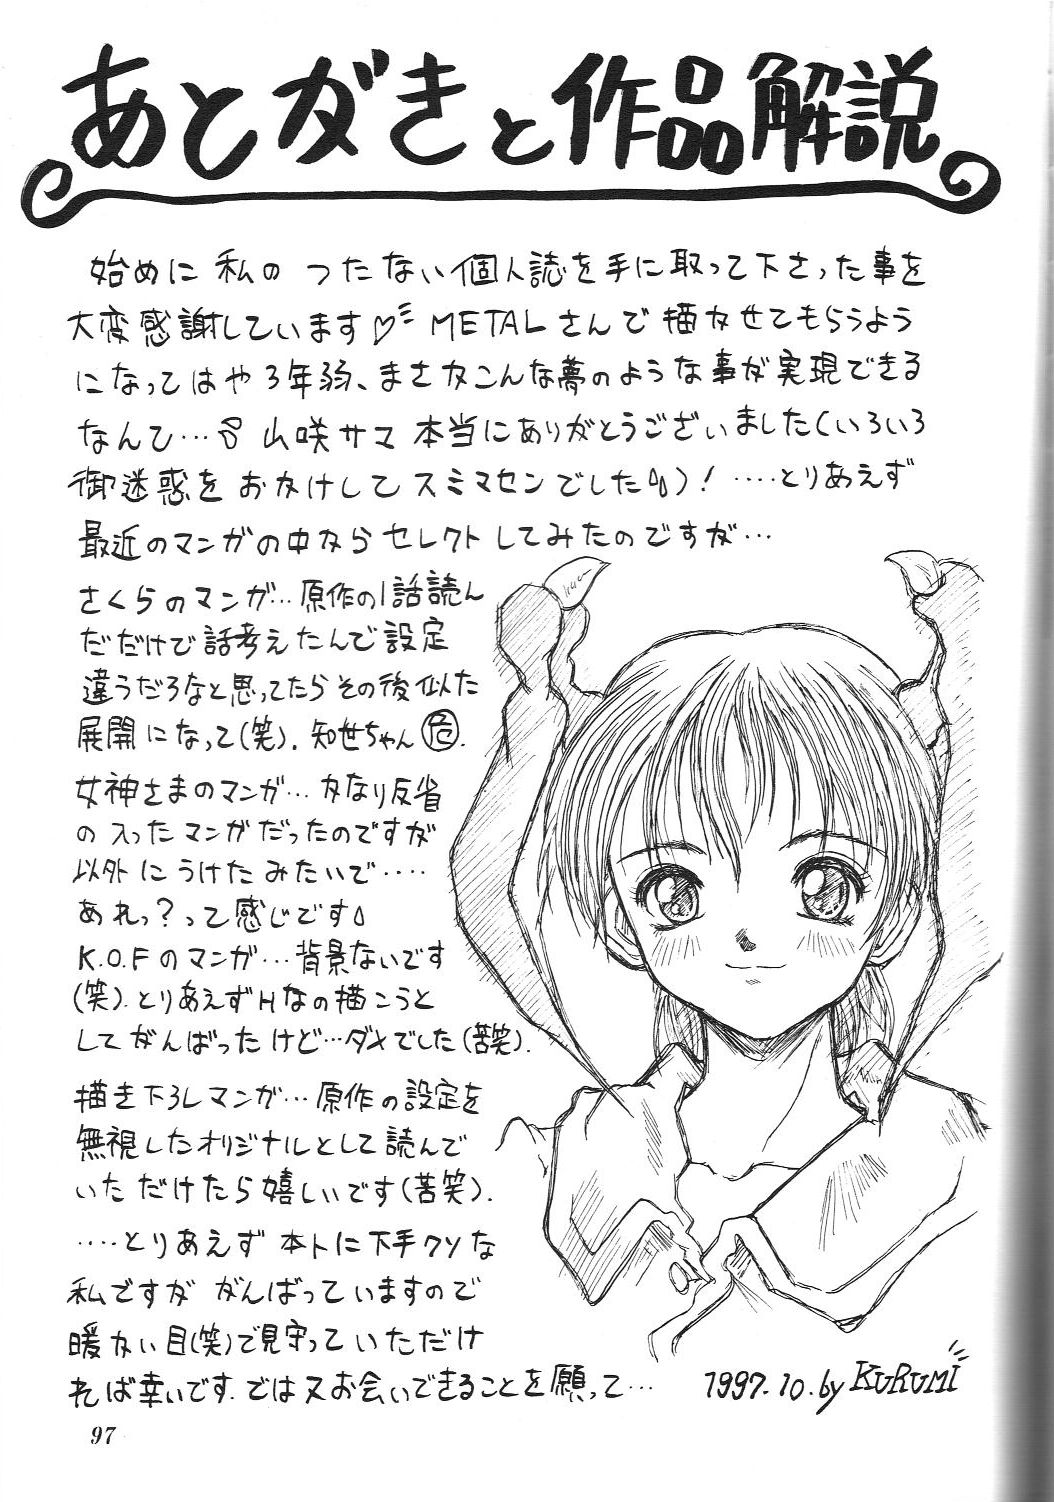 あとがきと作品解説
始めに 私の つたない個人誌を手に取って下さった事を
大変感謝しています♡ METALさんで描かせてもらうよう
になってはや3年弱、まさかこんな夢のような事が実現できる
なんて… 山咲サマ 本当にありがとうございました(いろいろ
御迷惑をおかけしてスミマセンでした)! ‥‥とりあえず
最近のマンガの中からセレクトしてみたのですが…
さくらのマンガ…原作の1話読ん
だだけで話考えたんで設定
違うだろなと思ってたらその後似た
展開になって(笑). 知世ちゃん㊀危.
女神さまのマンガ…かなり反省
の入ったマンガだったのですが
以外にうけたみたいで‥‥
あれっ?って感じです
K.O.Fのマンガ…背景ないです
(笑). とりあえずHなの描こうと
してがんばったけど…ダメでした(苦笑).
描き下ろしマンガ…原作の設定を
無視したオリジナルとして読んで
いただけたら嬉しいです(苦笑).
‥‥とりあえず 本トに下手クソな
私ですが がんばっていますので
暖かい目(笑)で見守っていただけ
れば幸いです. では又お会いできることを願って…
1997.10.by KURUMI
97